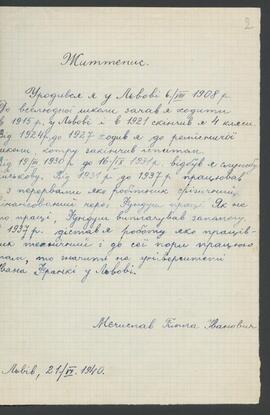 2
Життєпис.
Уродився я у Львові 6/VII 1908 р.
До вселюдної школи зачав ходити
в 1915 р. у Львові і в 1921 скінчив я 4 кляси
Від 1924 р. до 1927 ходив я до ремісничої
школи, котру закінчив іспитом.
Від 19/III 1930 р до 16/IX 1931 р. відбув я службу
військову. Від 1931 р до 1937 р. працював
з перервами яко робітник фізичний,
через Фундуш праці. Як не
праці, Фундуш виплачував запомогу
1937 р. дістав я роботу яко
технічний і до сеї пори працюю
там, то значить на університеті
Івана Франка у Львові.
Мечислав Іванович
Львів, 21/VI 1940.